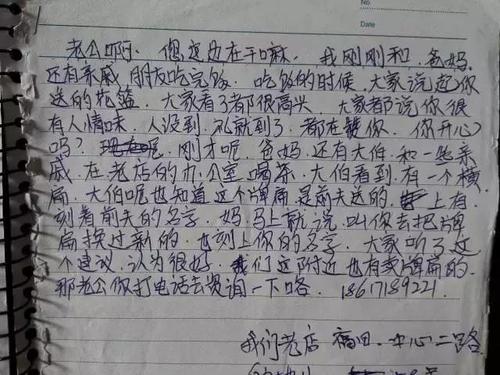 No
Date
老公啊、您这边在干嘛、我刚刚和、爸妈、
还有亲戚 朋友吃完饭、吃饭的时候、大家说起你
送的花篮、大家看了都很高兴、大家都说你很
有人情味、人没到 礼就到了、都在赞你、你开心
吗? 刚才呢、爸妈、还有大伯、和一些亲
戚、在老店的办公室喝茶、大伯看到、有一个横
扁、大伯呢也知道、这个牌扁、是前夫送的、上有
刻着前夫的名字、妈马上就说、叫你去把牌
扁换过新的、也刻上你的名字、大家听了这
个建议、认为很好、我们这附近也有卖牌扁的、
那老公你打电话去资询一下咯、18617189221、
我们老店 福田、中心二路